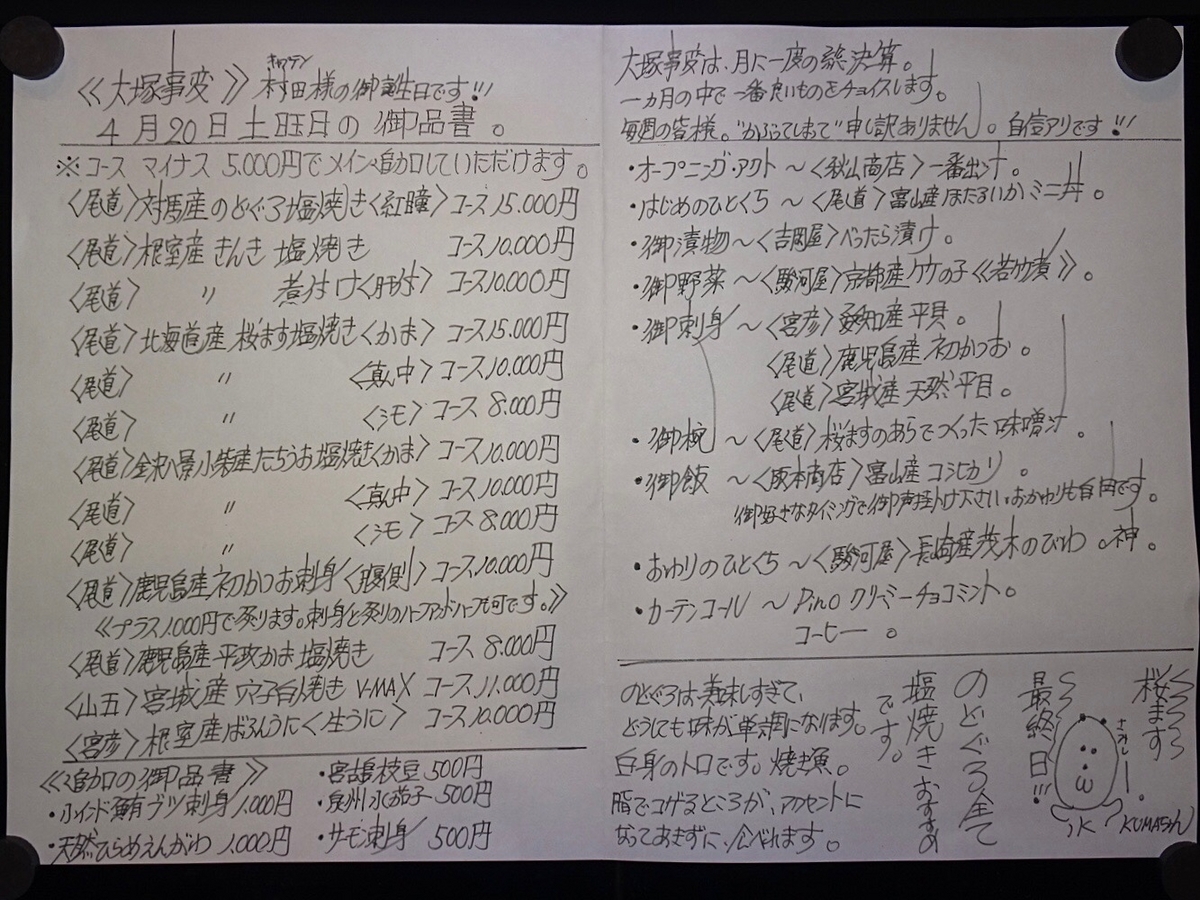 ≪大塚事変≫ 村田様の御誕生日です!!!
キャプテン
4月20日土曜日の御品書。
※コース マイナス 5.000円でメイン追加していただけます。
〈尾道〉対馬産のどぐろ塩焼き〈紅瞳〉コース15.000円
〈尾道〉根室産きんき 塩焼き コース10.000円
〈尾道〉 〃 煮付け〈肝付〉 コース10.000円
〈尾道〉北海道産 桜ます塩焼き〈かま〉 コース15.000円
〈尾道〉 〃 〈真ん中〉コース10.000円
〈尾道〉 〃 〈シモ〉コース 8.000円
〈尾道〉金沢八景小柴産たちうお塩焼き〈かま〉コース10.000円
〈尾道〉 〃 〈真ん中〉コース10.000円
〈尾道〉 〃 〈シモ〉コース8.000円
〈尾道〉鹿児島産初かつお刺身〈腹側〉コース10.000円
≪プラス1.000円で炙ります。刺身と炙りのハーフアンドハーフも可です。≫
〈尾道〉鹿児島産平政かま塩焼き コース 8.000円
〈山五〉宮城産 穴子白焼き V-MAX コース11.000円
〈宮彦〉根室産ばふんうに〈生うに〉コース10.000円
≪追加の御品書≫
・インド鮪ブツ刺身 1.000円
・天然ひらめえんがわ 1.000円
・宮古島枝豆 500円
・泉州水茄子 500円
・サーモン刺身 500円
大塚事変は、月に一度の総決算。
一カ月の中で一番良いものをチョイスします。
毎週の皆様。"かぶってしまって"申し訳ありません。自信アリです!!!
・オープニング・アクト ～〈秋山商店〉一番出汁。
・はじめのひとくち ～〈尾道〉富山産ほたるいかミニ丼。
・御漬物～〈吉岡屋〉べったら漬け。
・御野菜～〈駿河屋〉京都産タケの子≪若竹煮≫。
・御刺身～〈宮彦〉愛知産平貝。
〈尾道〉鹿児島産初かつお。
〈尾道〉宮城産天然平目。
・御椀 ～〈尾道〉桜ますのあらでつくった味噌汁。
・御飯 ～〈阪本商店〉富山産コシヒカリ。
御好きなタイミングで御声掛け下さい。おかわりも自由です。
・おわりのひとくち～〈駿河屋〉長崎産茂木のびわ。神。
・カーテンコール ～ Pino クリーミーチョコミント。
コーヒー。
のどぐろは美味しすぎて、
どうしても味が単調になります。
白身のトロです。焼き魚。
脂でコゲるところが、アクセントに
なってあきずに、食べれます。
のどぐろ全て
塩焼きおすすめ
です。
桜ます
最終日!!!
さみしー。
IK KUMASAN